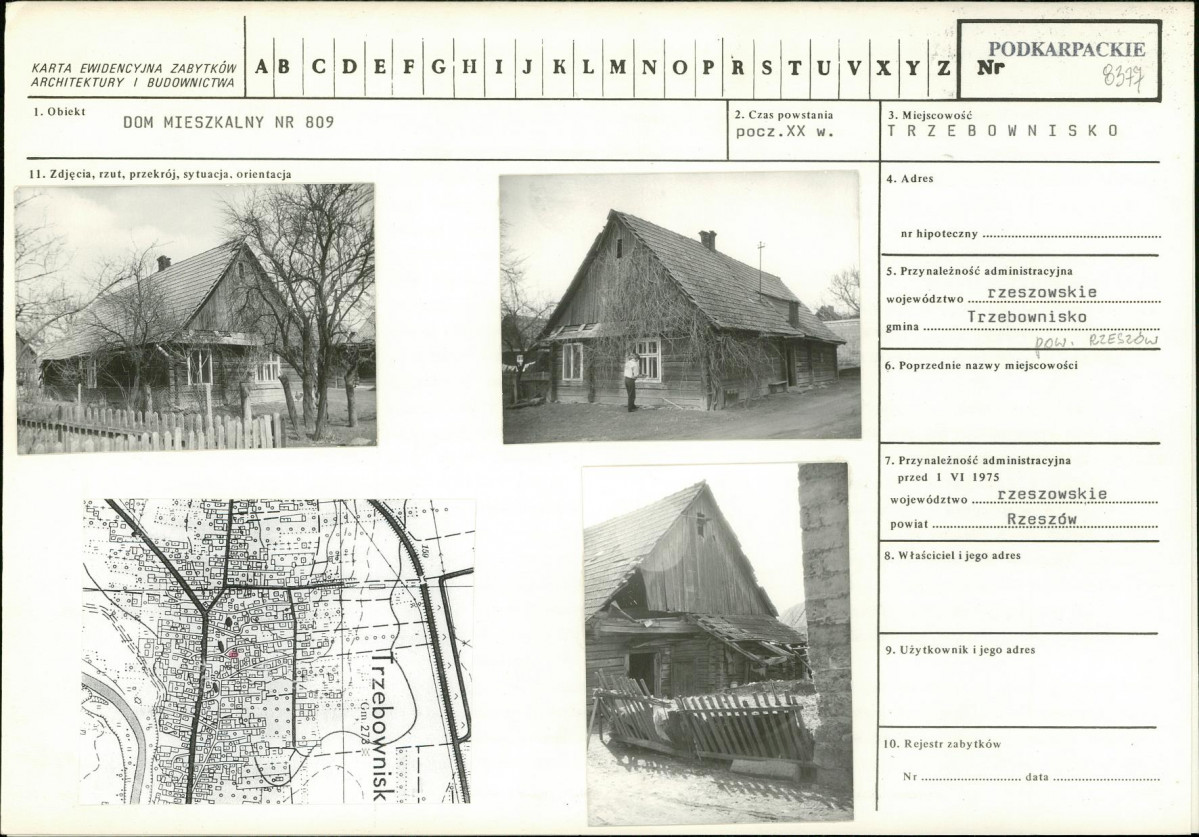 KARTA EWIDENCYJNA ZABYTKÓW
ARCHITEKTURY I BUDOWNICTWA
A B C D E F G H I J K L M N O P R S T U V X Y Z
PODKARPACKIE
Nr 8377
1. Obiekt
DOM MIESZKALNY NR 809
2. Czas powstania
pocz.XX w.
3. Miejscowość
TRZEBOWNISKO
11. Zdjęcia, rzut, przekrój, sytuacja, orientacja
4. Adres
nr hipoteczny
5. Przynależność administracyjna
województwo rzeszowskie
gmina Trzebownisko
pow. RZESZÓW
6. Poprzednie nazwy miejscowości
7. Przynależność administracyjna
przed 1 VI 1975
województwo rzeszowskie
powiat Rzeszów
8. Właściciel i jego adres
9. Użytkownik i jego adres
10. Rejestr zabytków
Nr data
159
Trzebownisk
Gm 273